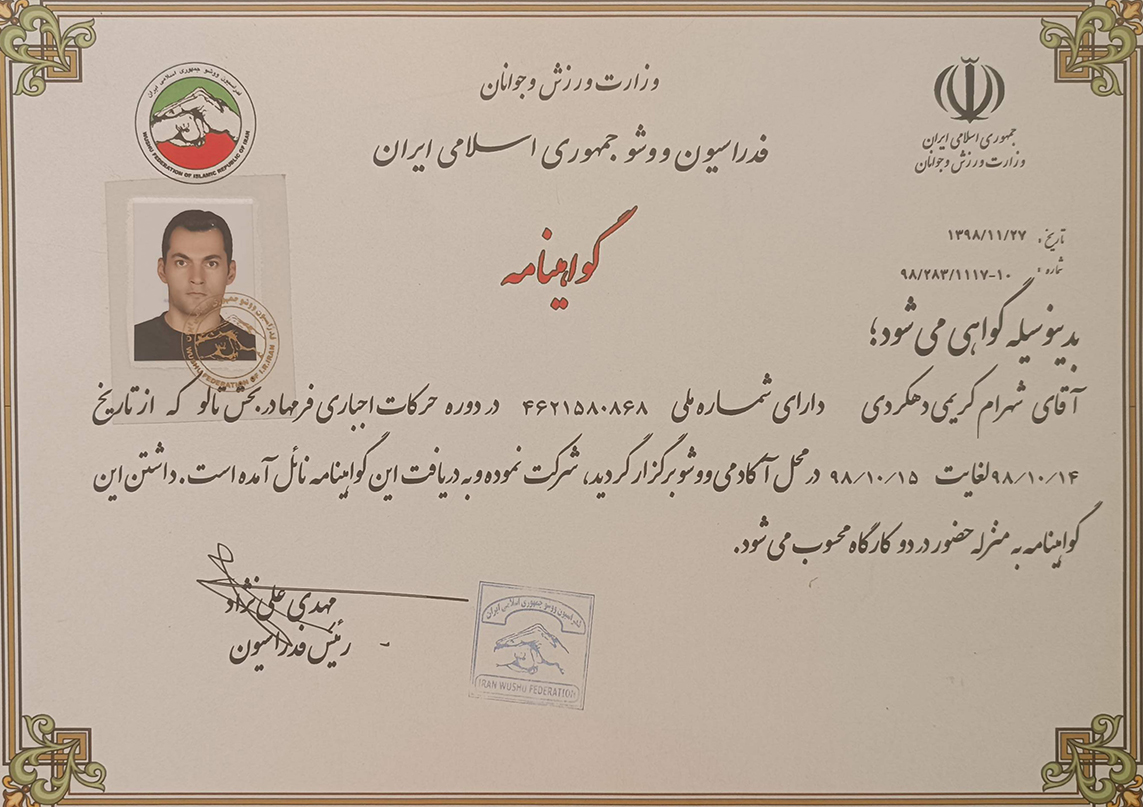 وزارت ورزش و جوانان
فدراسیون ووشو جمهوری اسلامی ایران
جمهوری اسلامی ایران
وزارت ورزش و جوانان
فدراسیون ووشو جمهوری اسلامی ایران
WUSHU FEDERATION OF ISLAMIC REPUBLIC OF IRAN
گواهینامه
تاریخ: ۱۳۹۸/۱۱/۲۷
شماره: ۹۸/۲۸۳/۱۱۱۷-۱۰
بدینوسیله گواهی می شود؛
آقای شهرام کریمی دهکردی دارای شماره ملی ۴۶۲۱۵۸۰۸۶۸ در دوره حرکات اجباری فرمها در بخش تالو که از تاریخ
۹۸/۱۰/۱۴ لغایت ۹۸/۱۰/۱۵ در محل آکادمی ووشو برگزار گردید، شرکت نموده و به دریافت این گواهینامه نائل آمده است. داشتن این
گواهینامه به منزله حضور در دو کارگاه محسوب می شود.
فدراسیون ووشو جمهوری
WUSHU FEDERATION OF I.R.IRAN
مهدی علی نژاد
رئیس فدراسیون
فدراسیون ووشو جمهوری اسلامی ایران
IRAN WUSHU FEDERATION